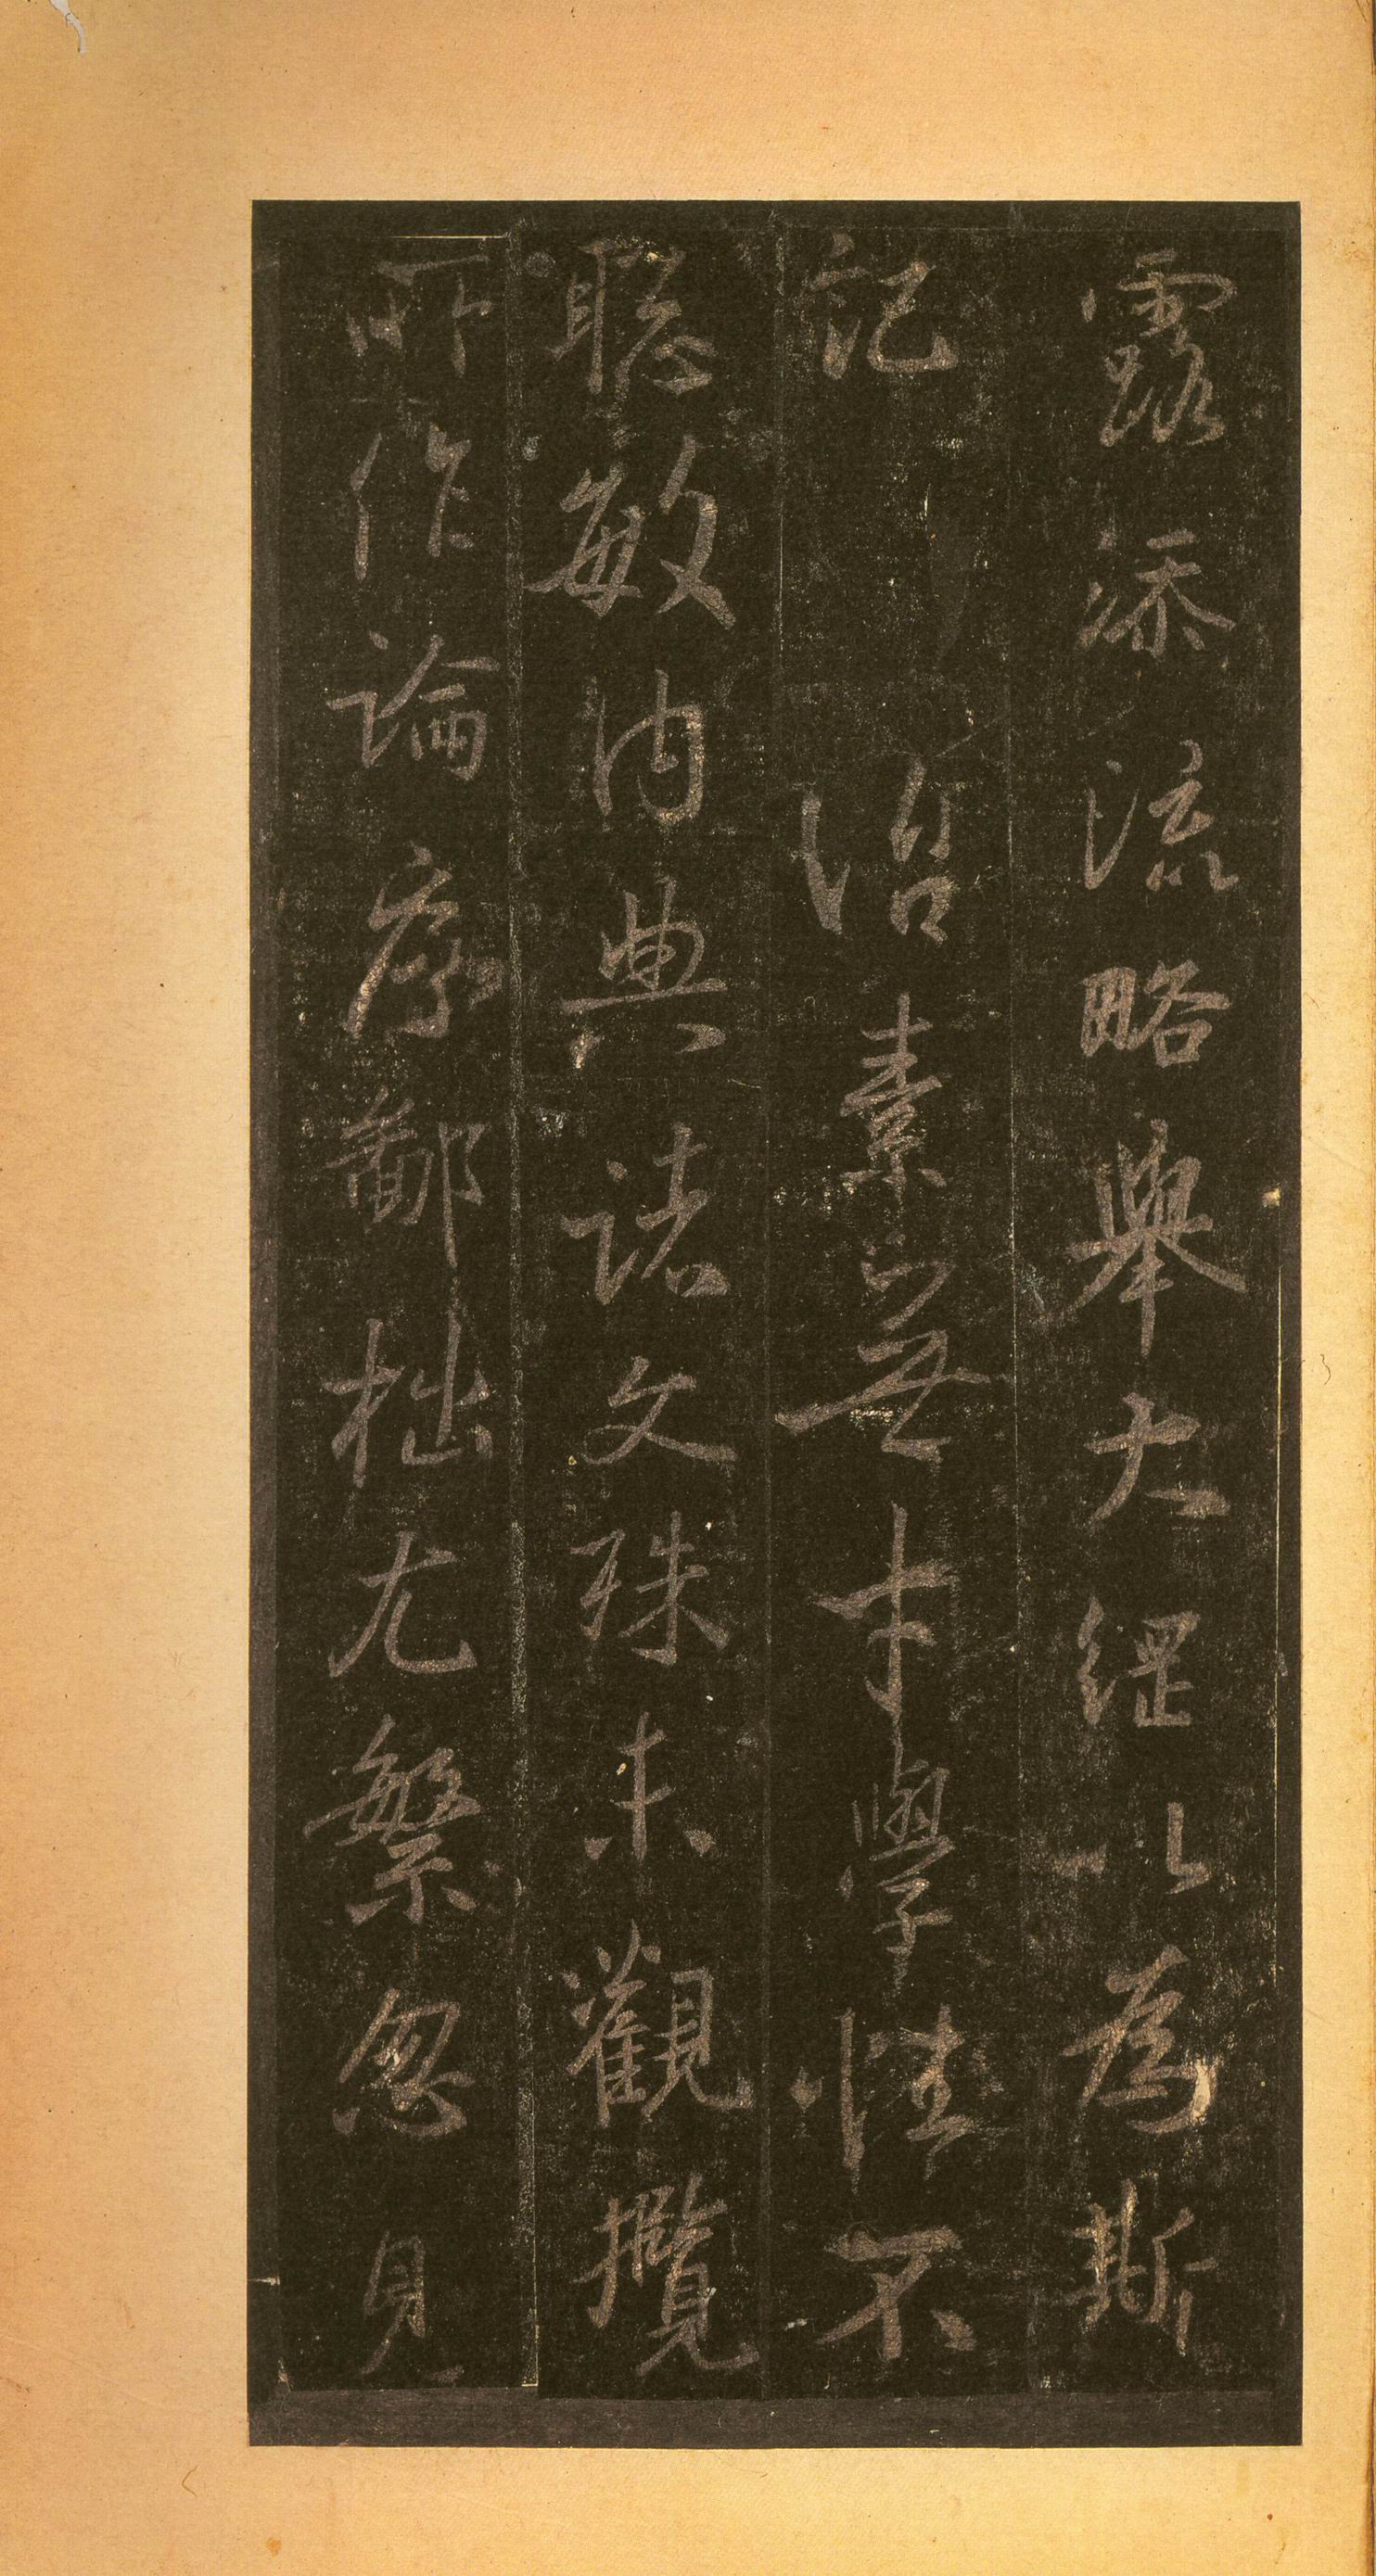 露添流略舉大綱以爲斯
記
治素無才學性不
聰敏内典諸文殊未觀攬
所作論序鄙拙尤繁忽見